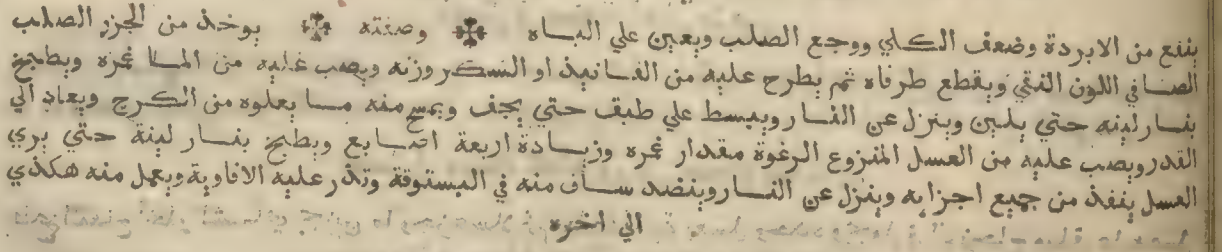 ينفع من الابردة وضعف الكلي ووجع الصلب ويعين علي الباه وصفته يوخذ من الجزر الصلب
الصافي اللون النقي ويقطع طرفاه ثم يطرح عليه من الفانيذ او السكر وزنه ويصب عليه من الما غمره ويطبخ
بنار لينه حتي يلين وينزل عن النار ويبسط علي طبق حتي يجف ويمسح منه ما يعلوه من الكرج ويعاد الي
القدر ويصب عليه من العسل المنزوع الرغوة مقدار غمره وزيادة اربعة اصابع ويطبخ بنار لينة حتي يري
العسل ينفذ من جميع اجزايه وينزل عن النار وينضد ساف منه في البستوقة وتذر عليه الافاوية ويعمل منه هكذي
الي اخره